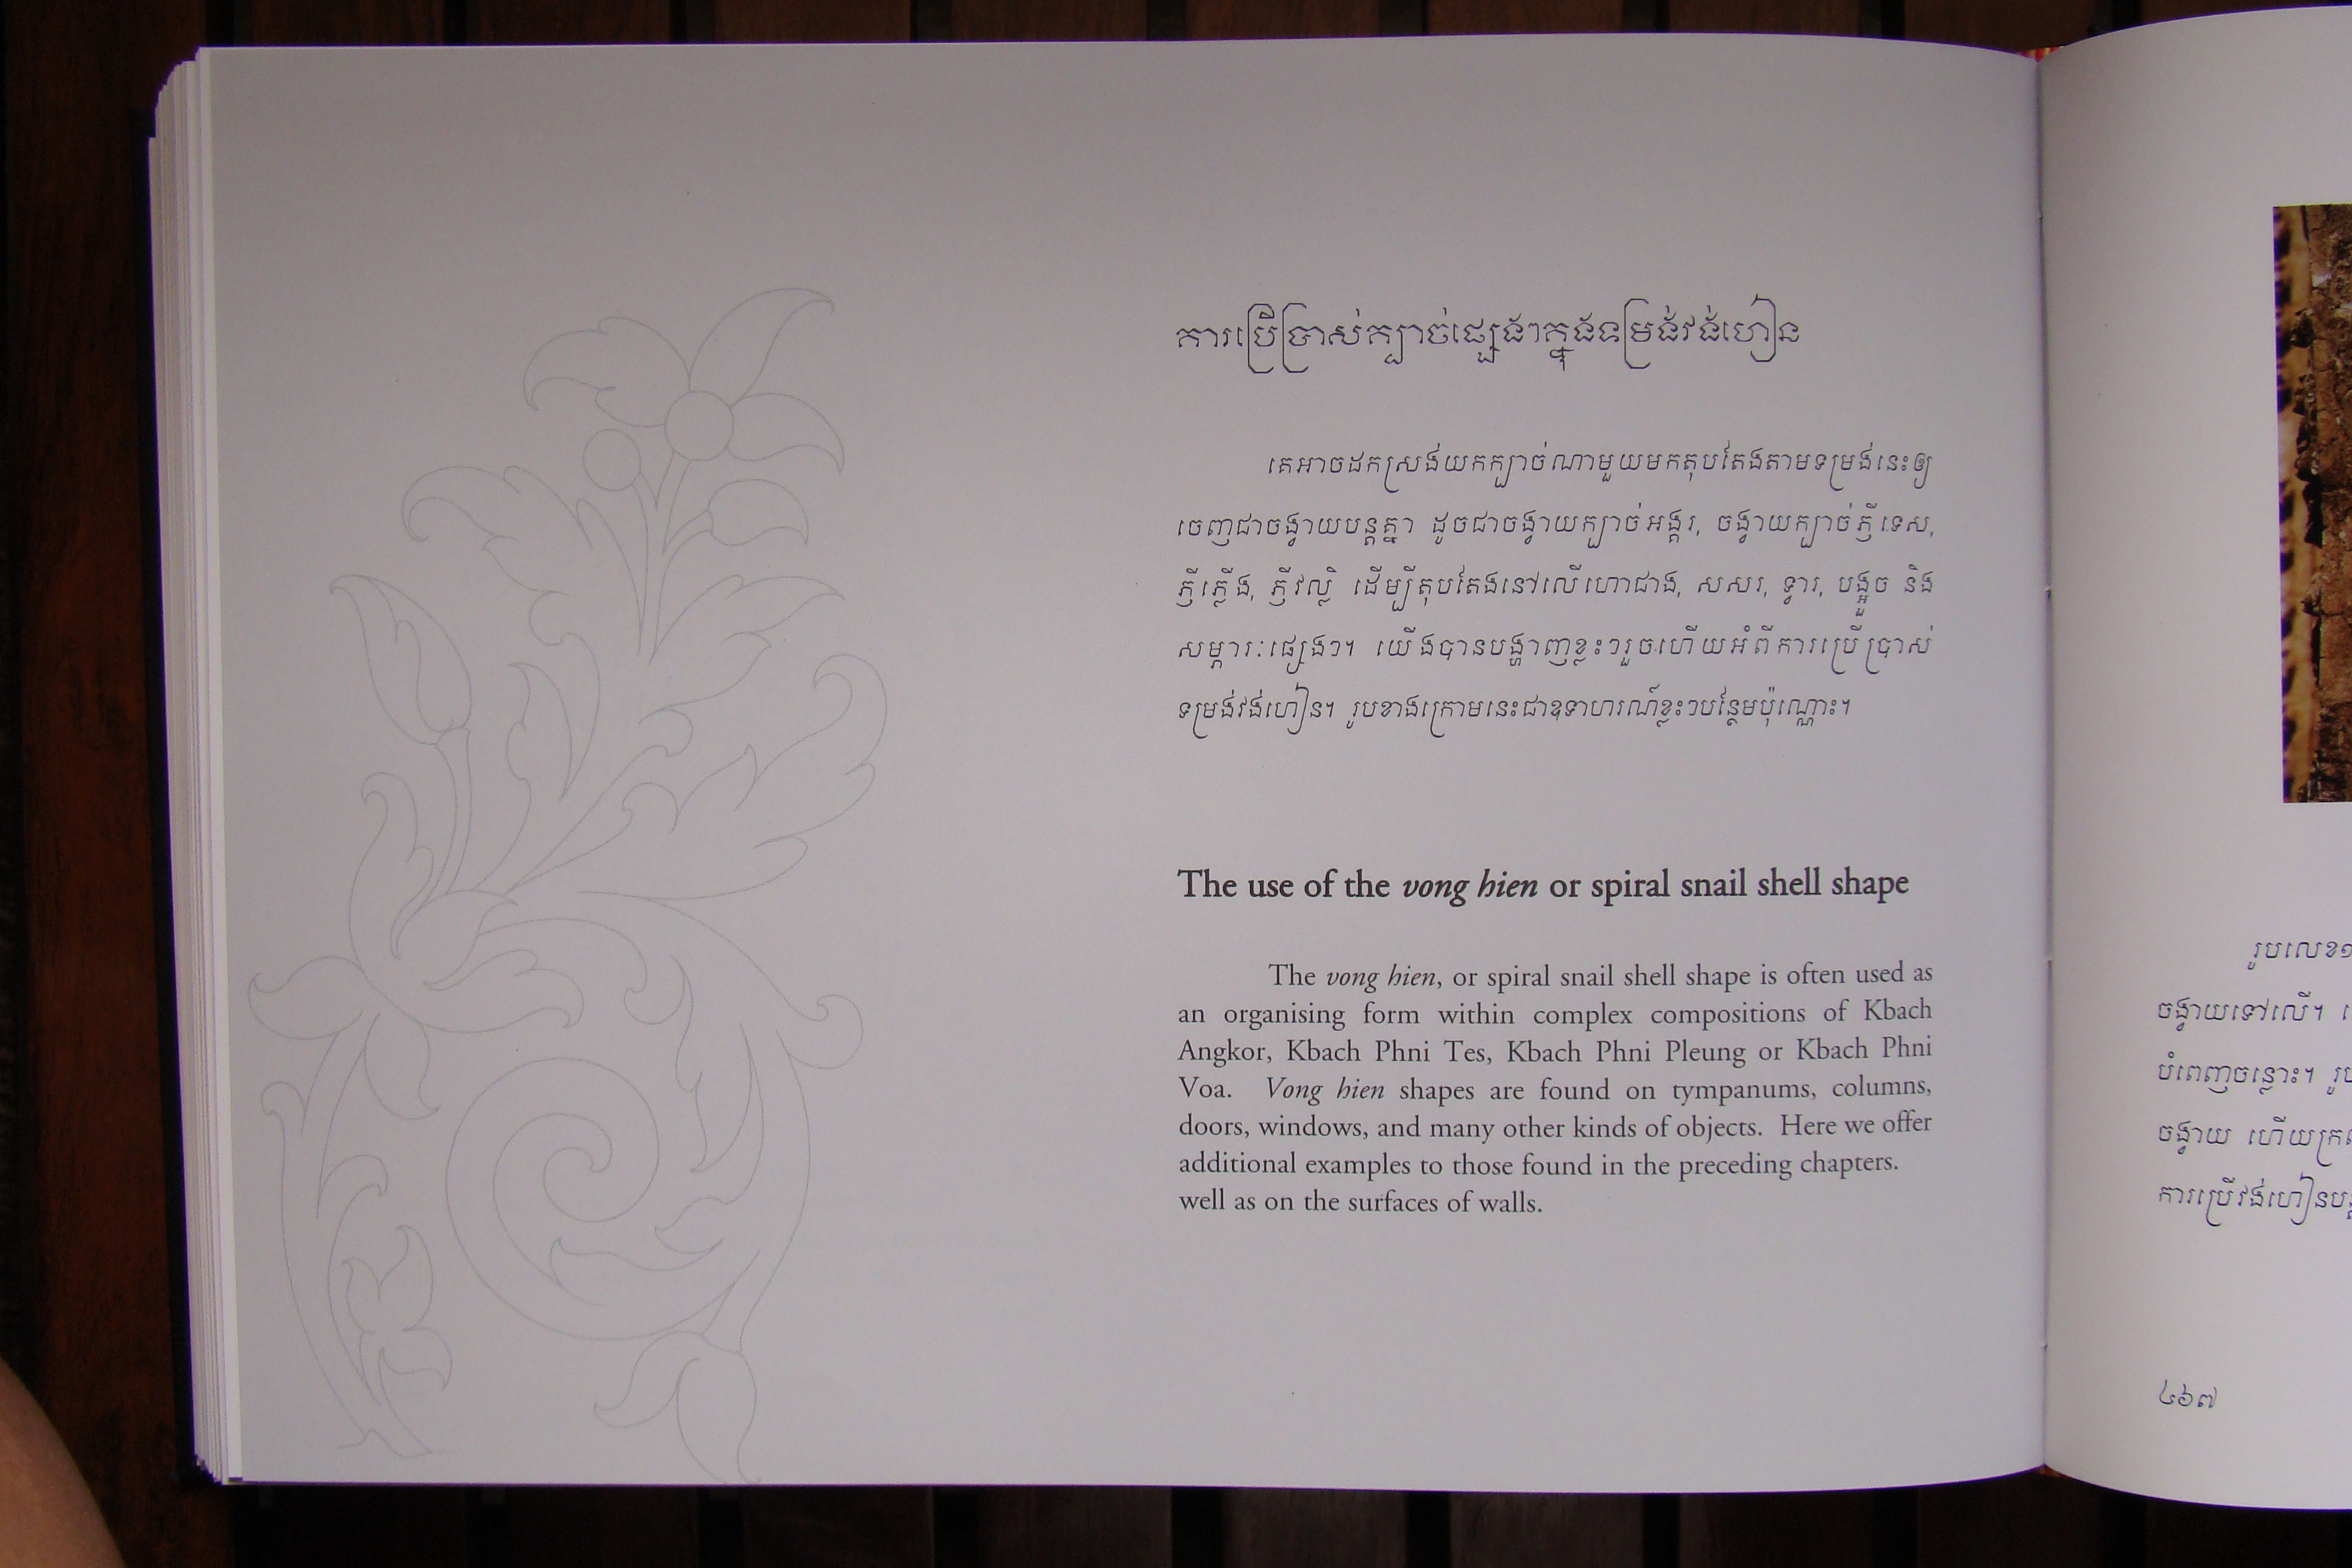 ការប្រើប្រាស់ក្បាច់ផ្សេងៗក្នុងទម្រង់វង់ហៀន
គេអាចដកស្រង់យកក្បាច់ណាមួយមកតុបតែងតាមទម្រង់នេះឲ្យ
ចេញជាចង្វាយបន្តគ្នា ដូចជាចង្វាយក្បាច់អង្គរ, ចង្វាយក្បាច់ភ្ញីទេស,
ភ្ញីភ្លើង, ភ្ញីវល្លិ ដើម្បីតុបតែងនៅលើហោជាង, សសរ, ទ្វារ, បង្អួច និង
សម្ភារៈផ្សេងៗ។ យើងបានបង្ហាញខ្លះៗរួចហើយអំពីការប្រើប្រាស់
ទម្រង់វង់ហៀន។ រូបខាងក្រោមនេះជាឧទាហរណ៍ខ្លះៗបន្ថែមប៉ុណ្ណោះ។
The use of the vong hien or spiral snail shell shape
The vong hien, or spiral snail shell shape is often used as
an organising form within complex compositions of Kbach
Angkor, Kbach Phni Tes, Kbach Phni Pleung or Kbach Phni
Voa. Vong hien shapes are found on tympanums, columns,
doors, windows, and many other kinds of objects. Here we offer
additional examples to those found in the preceding chapters.
well as on the surfaces of walls.
រូបលេខ១
ចង្វាយទៅលើ។
បំពេញចន្លោះ។
ចង្វាយ ហើយ
ការប្រើវង់ហៀន
៤៦៧